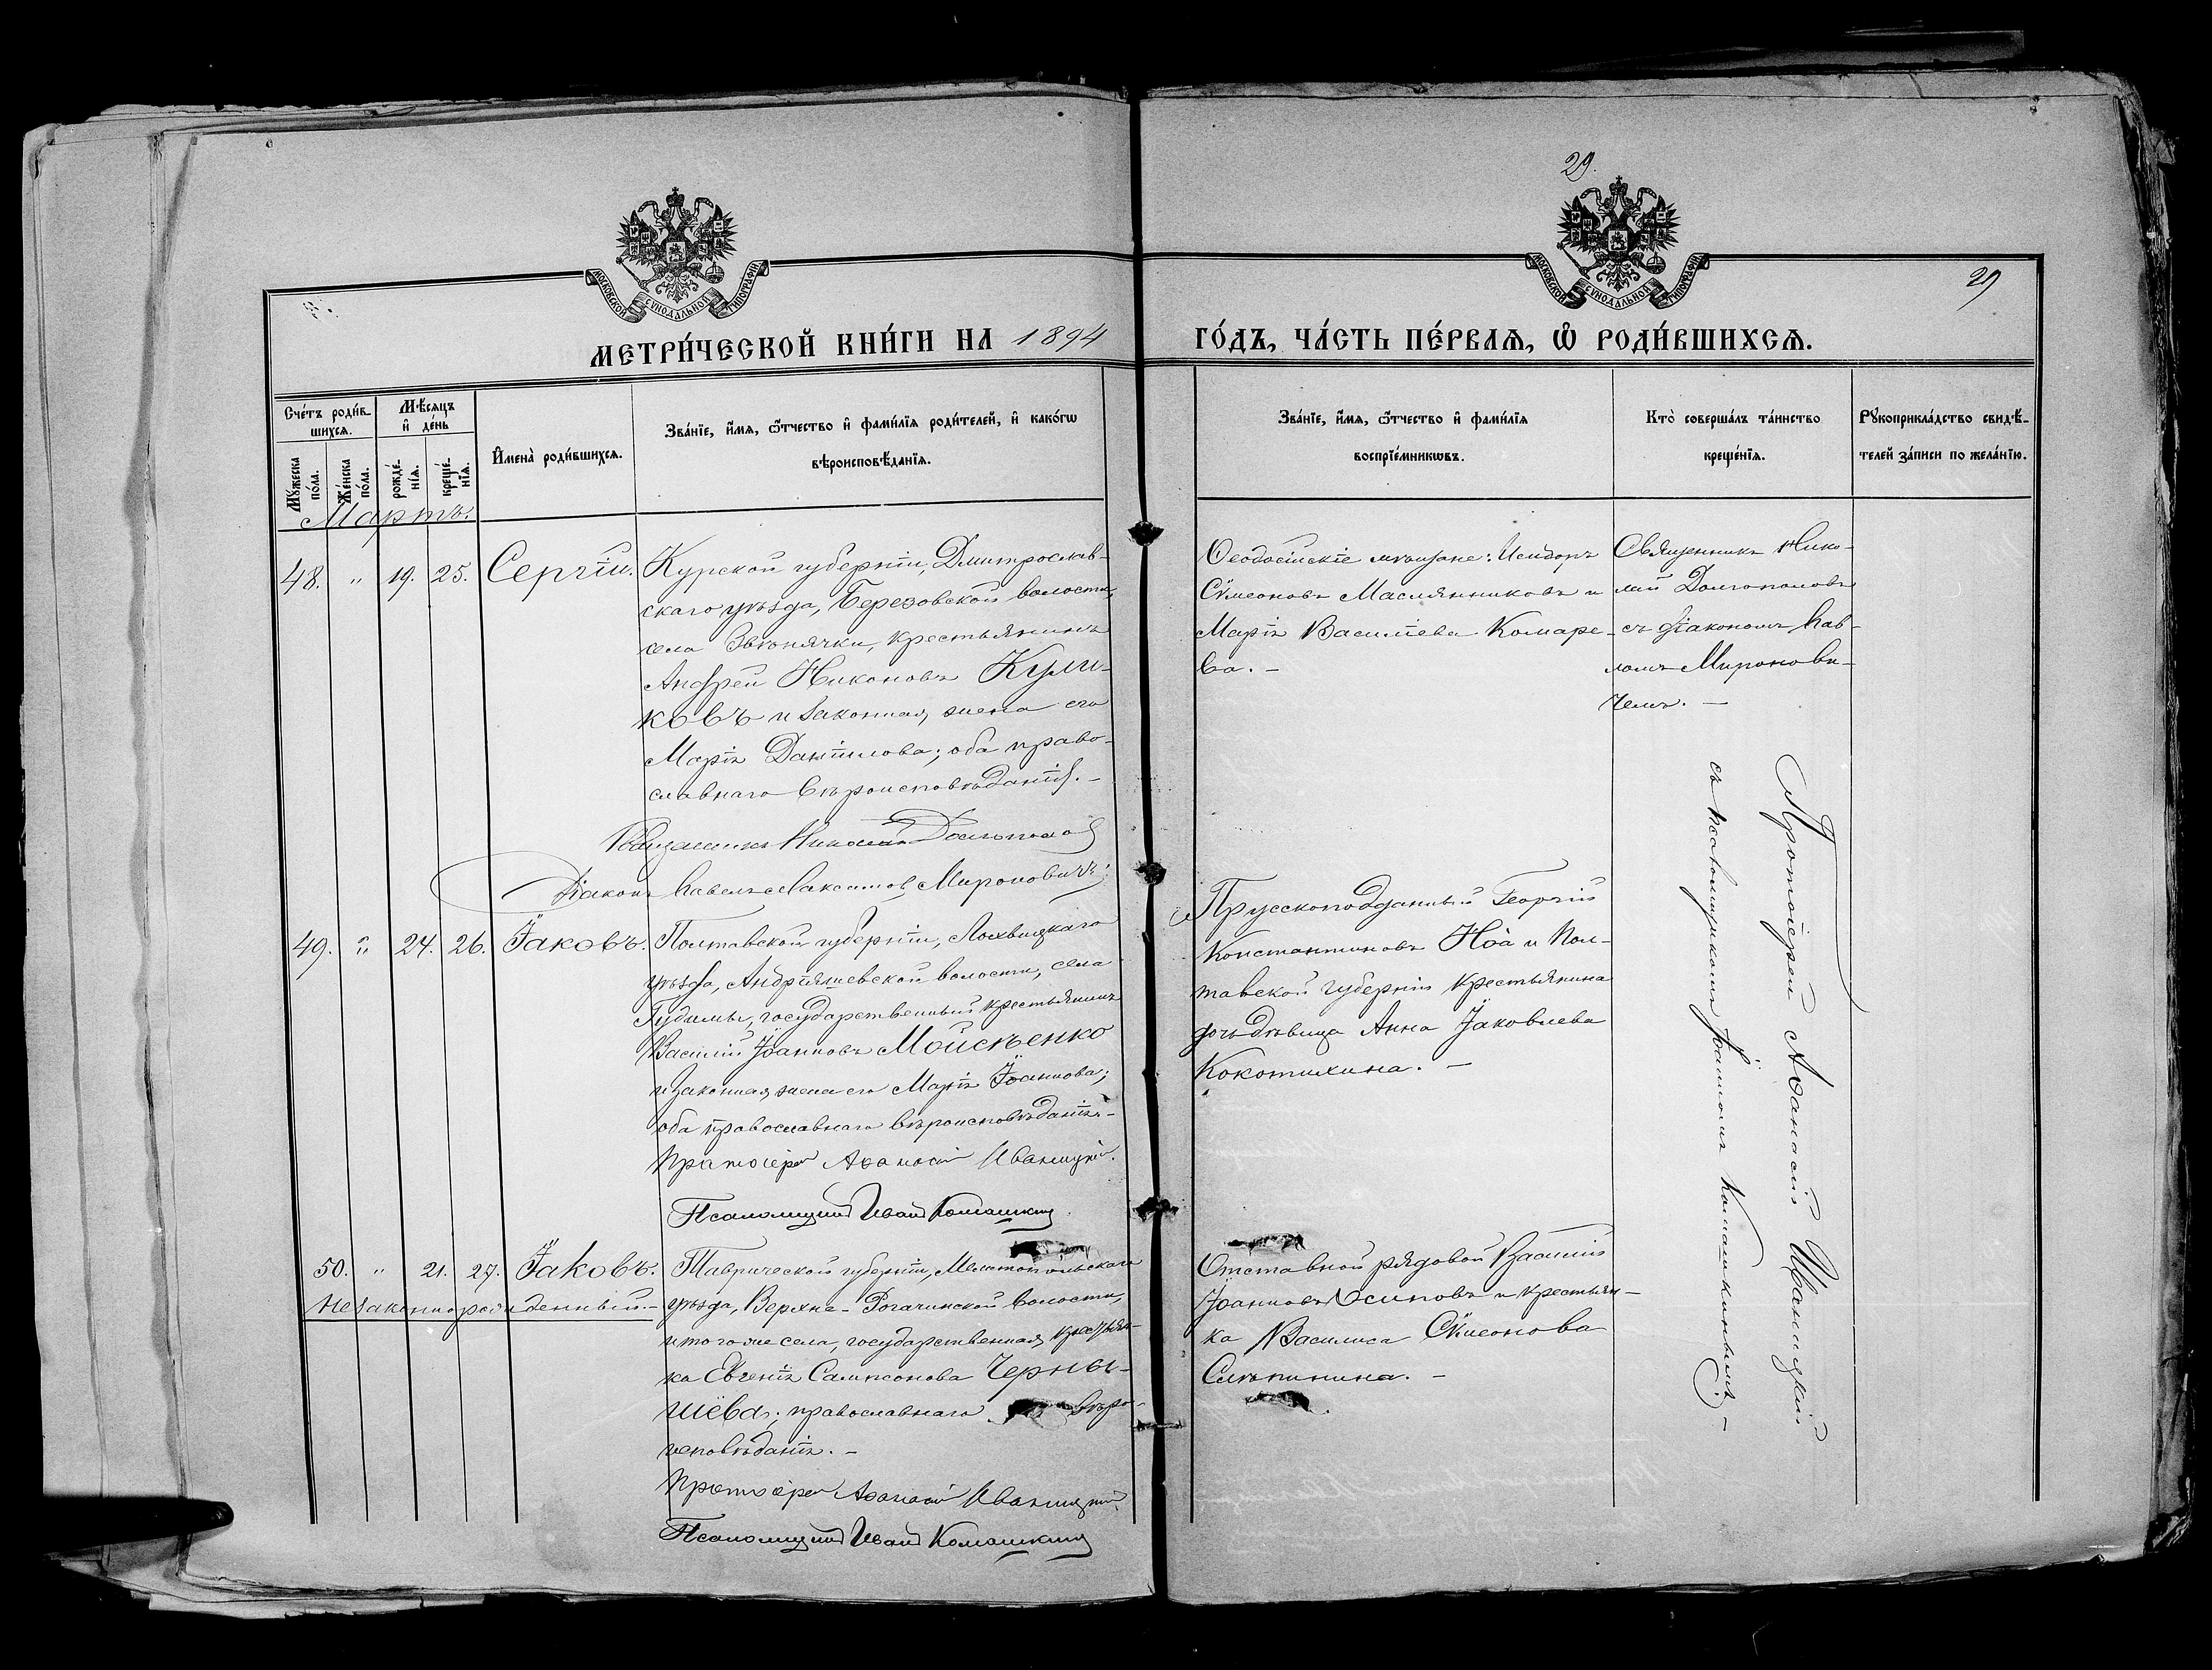 29.
МОСКОВСКОЙ СѴНОДАЛЬНОЙ ТИПОГРАФІИ
МОСКОВСКОЙ СѴНОДАЛЬНОЙ ТИПОГРАФІИ
29
МЕТРИ́ЧЕСКОЙ КНИ́ГИ НА 1894
ГО́ДЪ, ЧА́СТЬ ПЕ́РВАѦ, Ѡ҆ РОДИ́ВШИХСѦ.
Сче́тъ роди́в-
шихсѧ.
Мꙋ́жеска по́ла.
Же́нска по́ла.
Мѣ́сѧцъ и҆ де́нь
рожде́-нїѧ.
креще́-нїѧ.
И҆мена̀ роди́вшихсѧ.
Зва́нїе, и҆́мѧ, ѻ҆́тчество и҆ фами́лїѧ роди́телей, и҆ како́гѡ
вѣроисповѣ́данїѧ.
Зва́нїе, и҆́мѧ, ѻ҆́тчество и҆ фами́лїѧ
воспрїе́мникѡвъ.
Кто̀ соверша́лъ та́инство
креще́нїѧ.
Рꙋкоприкла́дство свидѣ́-
телей за́писи по жела́нїю.
Мартъ.
48. " 19. 25. Сергій.
Курской губерніи, Дмитрослав-
скаго уѣзда, Березовской волости,
села Звѣнячки, крестьянинъ
Андрей Никоновъ Кули-
ковъ и законная жена его
Марія Даніилова; оба право-
славнаго вѣроисповѣданія. -
Священникъ Николай Долгополов
Діаконъ Павелъ Максимов Мироновичъ
Ѳеодосійскіе мѣщане: Исидоръ
Сѵмеоновъ Маслянниковъ и
Марія Василіева Комаре-
ва. -
Священникъ Нико-
лай Долгополовъ
съ діакономъ Пав-
ломъ Миронови-
чемъ. -
49. " 24. 26. Іаковъ.
Полтавской губерніи, Лохвицкаго
уѣзда, Андріяшевской волости, села
Гудимы, государственный крестьянинъ
Василій Іоанновъ Мойсѣенко
и законная жена его Марія Іоаннова;
оба православнаго вѣроисповѣданія. -
Протоіерей Аѳанасій Иваницкій.
Псаломщикъ Иванъ Комашкинъ.
Прусскоподданный Георгій
Константиновъ Ноа и Пол-
тавской губерніи крестьянина
дочь дѣвица Анна Іаковлева
Кокотихина. -
Протоіерей Аѳанасій Иваницкій
съ псаломщикомъ Іоанномъ Комашкинымъ. -
50. " 21. 27. Іаковъ.
Незаконнорожденный. -
Таврической губерніи, Мелитопольскаго
уѣзда, Верхне-Рогачинской волости,
и того же села, государственная крестьян-
ка Евгенія Сампсонова Черны-
шёва; православнаго вѣро-
исповѣданія. -
Протоіерей Аѳанасій Иваницкій.
Псаломщикъ Иванъ Комашкинъ
Отставной рядовой Василій
Іоанновъ Осиповъ и крестьян-
ка Василиса Сѵмеонова
Слѣпинина. -